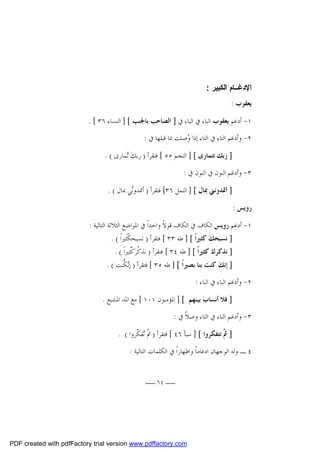 الإدغـــام الكبير :
يعقوب :
١- أدغم يعقوب الباء في الباء في [ الصاحب بالجنب ] [ النساء ٣٦ ] .
٢- وأدغم التاء في التاء إذا وُصلت بما قبلها في :
[ ربك تتمارى ] [ النجم ٥٥ ] فتقرأ ( ربك تَّمارى ) .
٣- وأدغم النون في النون في :
[ أتمدونني بمال ] [ النمل ٣٦] فتقرأ ( أتمدونِّي بمال ) .
رويس :
١- أدغم رويس الكاف في الكاف قولاً واحداً في المواضع الثلاثة التالية :
[ نسبحك كثيراً ] [ طه ٣٣ ] فتقرأ ( نسبحكَّثيراً ) .
[ نذكرك كثيراً ] [ طه ٣٤ ] فتقرأ ( نذكركَّثيراً ) .
[ إنك كنت بنا بصيراً ] [ طه ٣٥ ] فتقرأ ( إنكُّنت ) .
٢- وأدغم الباء في الباء :
[ فلا أنساب بينهم ] [ المؤمنون ١٠١ ] مع المد المشبع .
٣- وأدغم التاء في التاء وصلاً في :
[ ثم تتفكروا ] [ سبأ ٤٦ ] فتقرأ ( ثم تَّفكروا ) .
٤ ــ وله الوجهان ادغاماً واظهاراً في الكلمات التالية :
ـــــ ٦٤ ـــــ
PDF created with pdfFactory trial version www.pdffactory.com